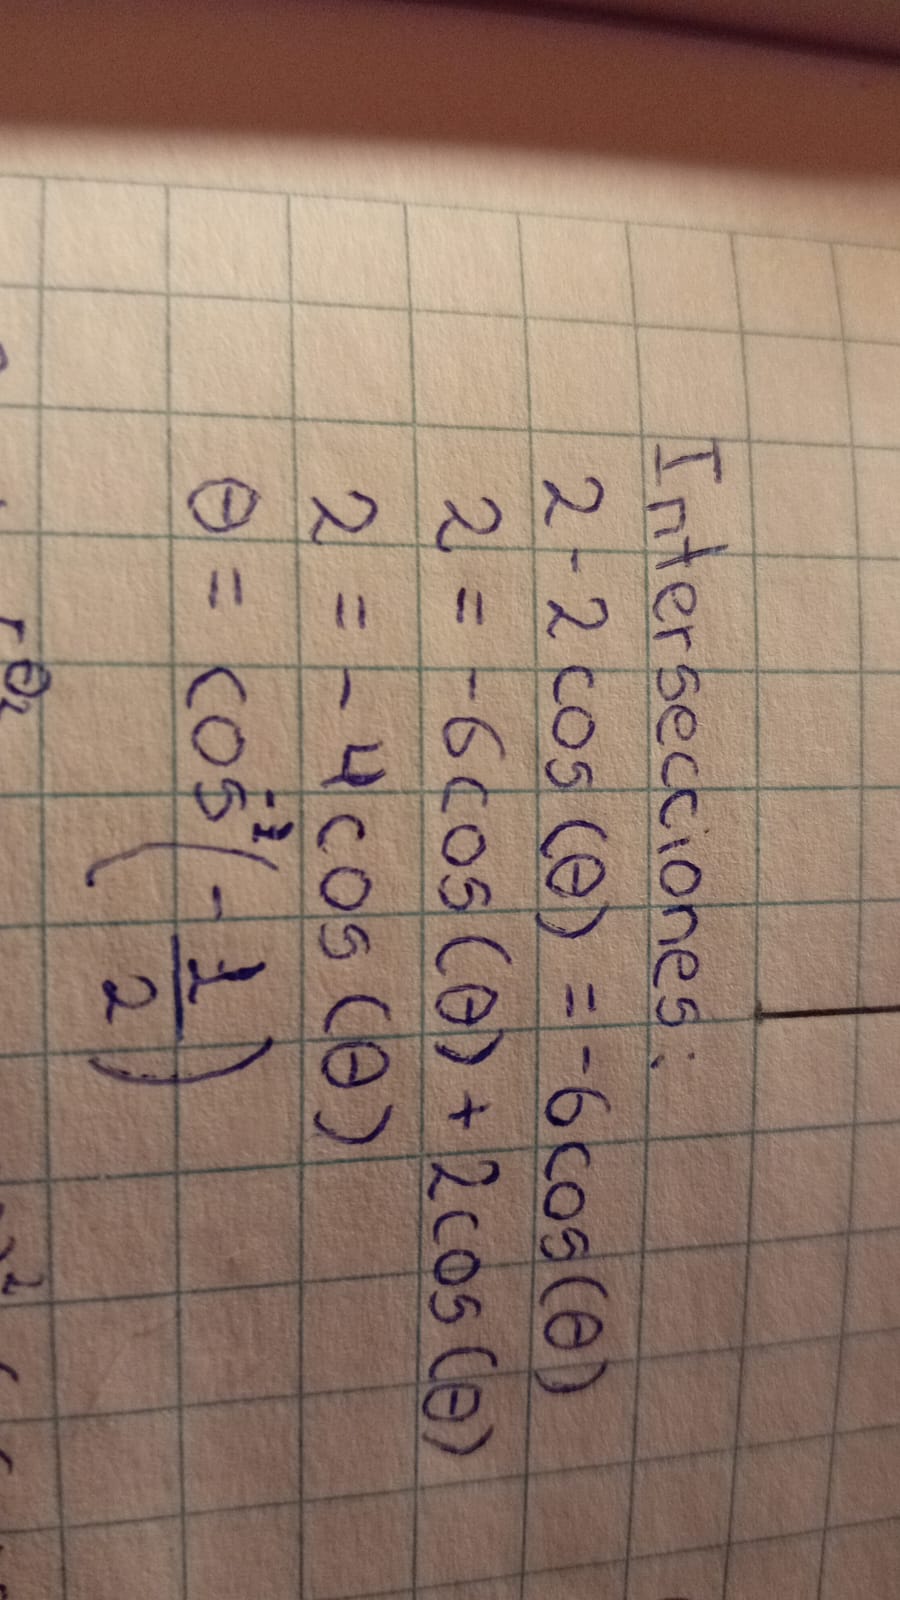 Intersecciones:
2-2cos(θ) = -6cos(θ)
2 = -6cos(θ) + 2cos(θ)
2 = -4cos(θ)
θ = cos⁻¹(-1/2)